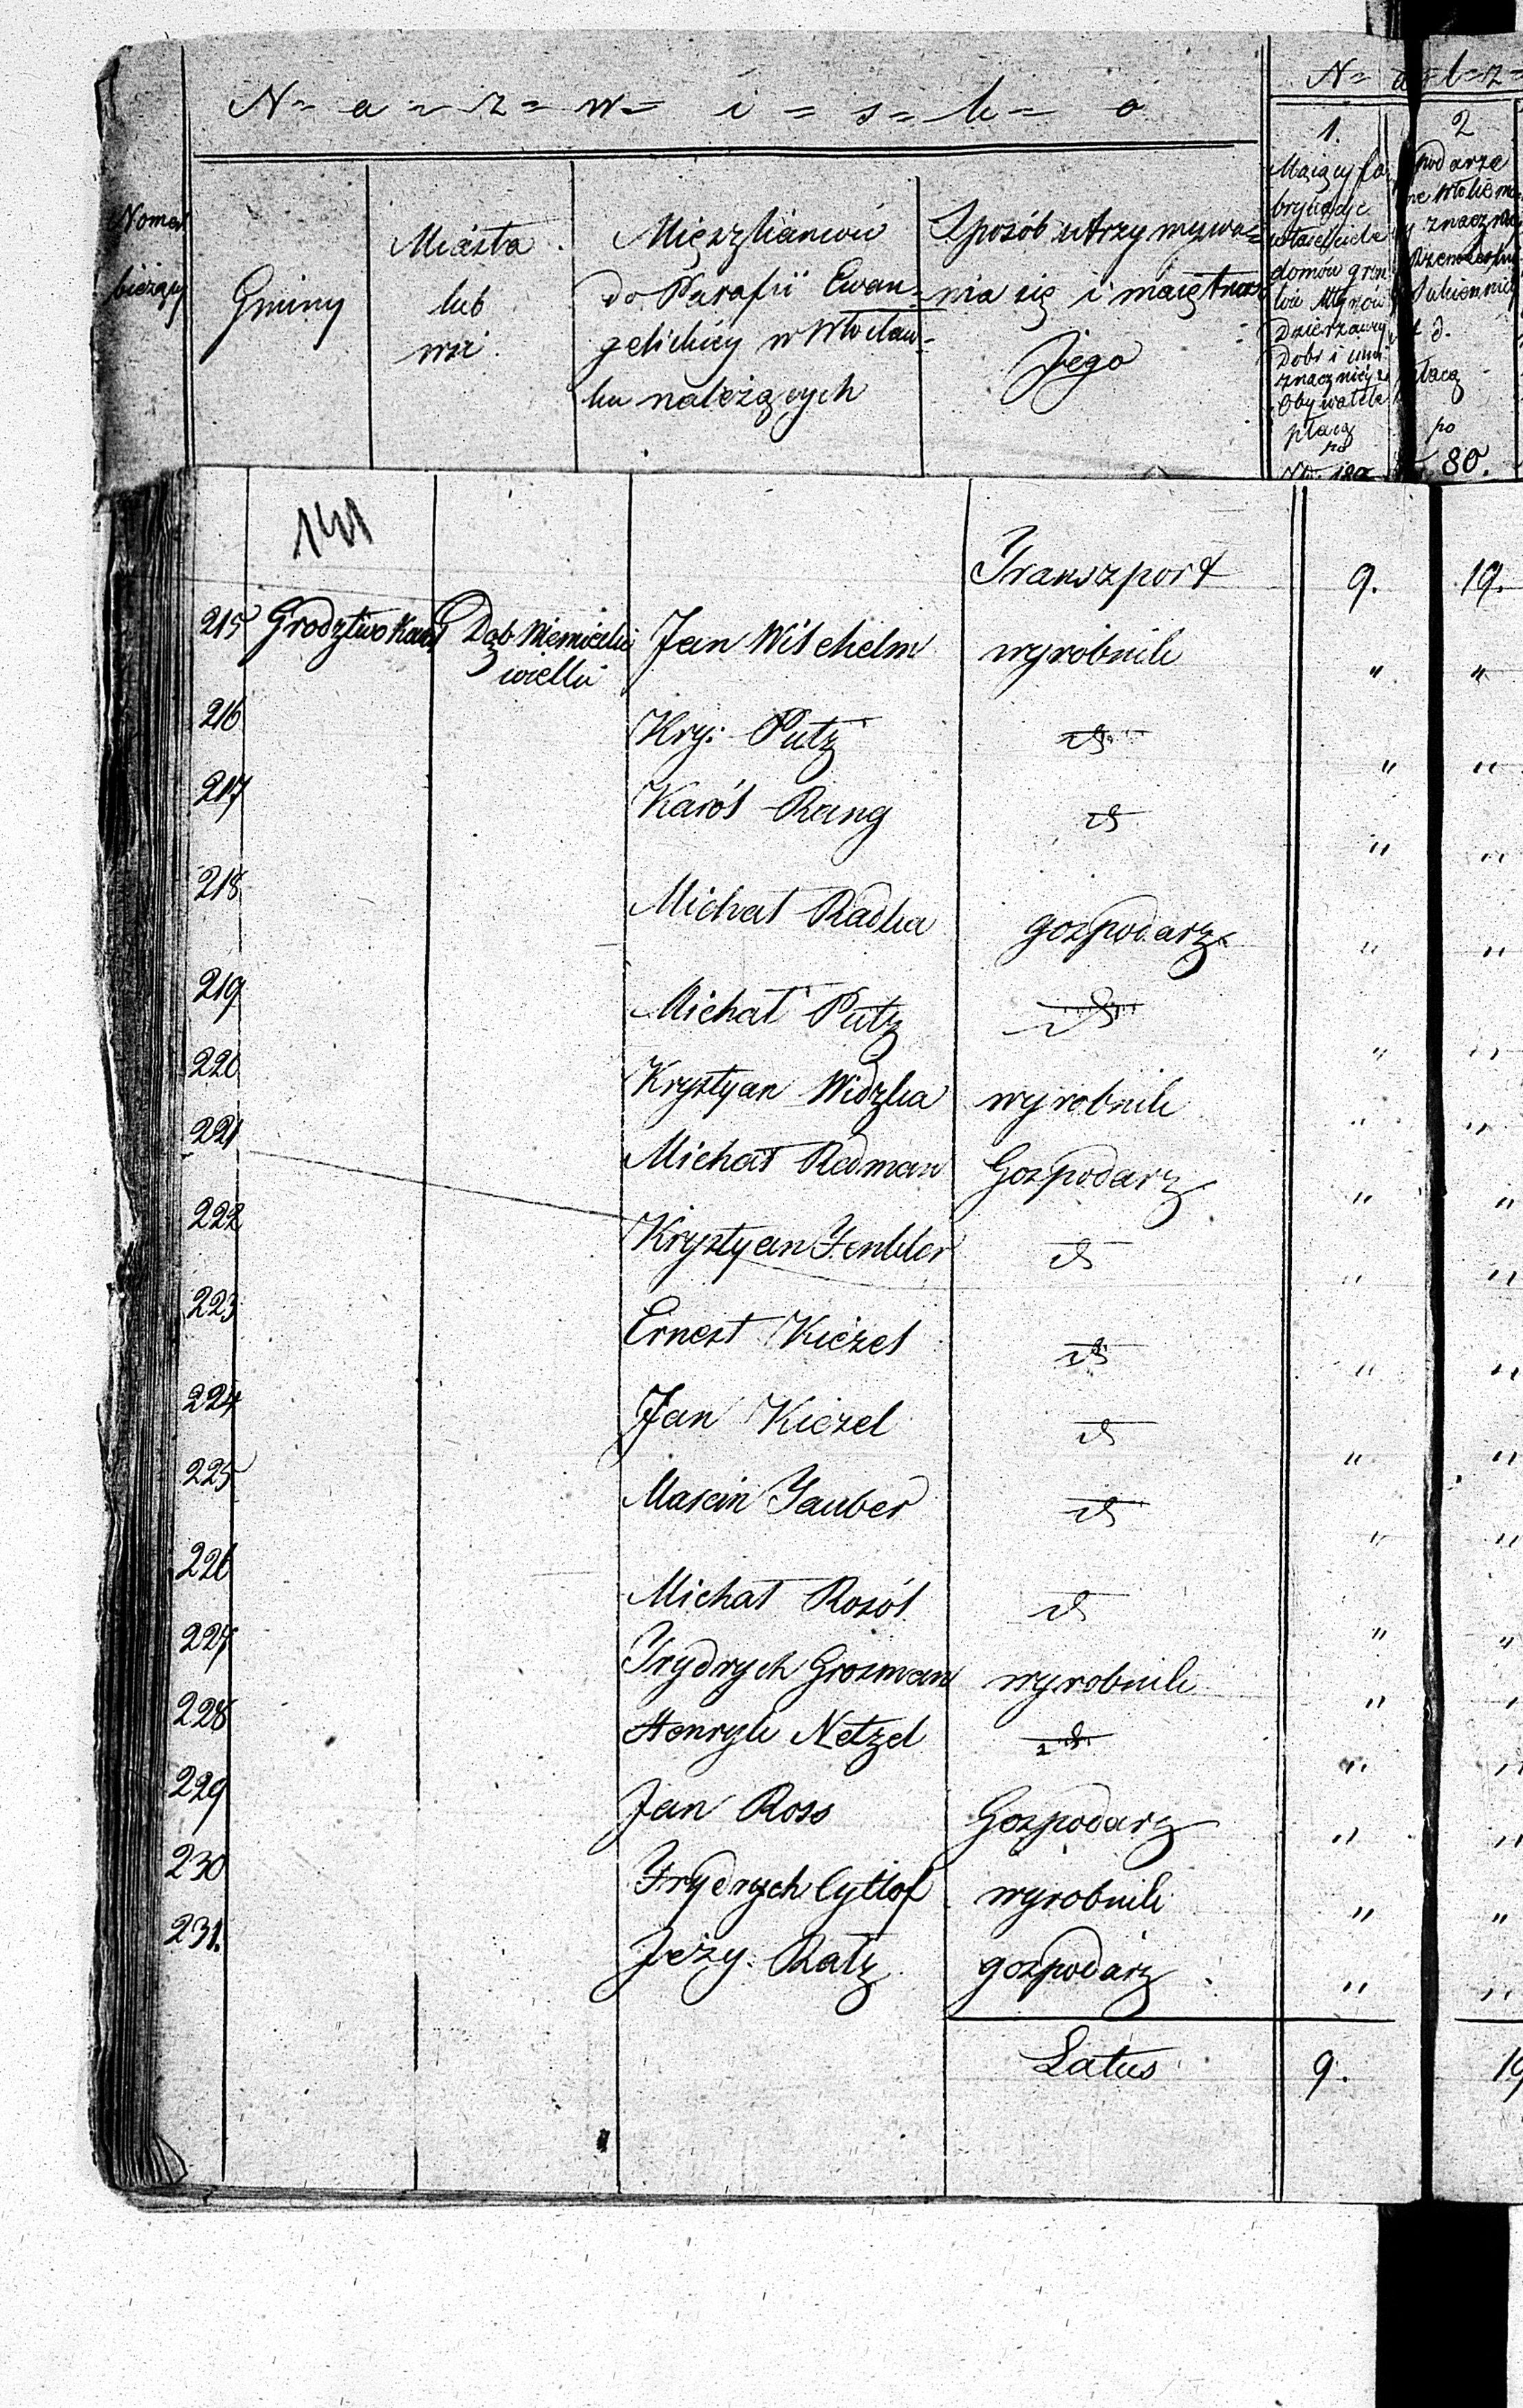 N=a=z=w=i=s=k=o
Numer bieżący
Gminy
Miasta
lub
wsi
Mięszkańców
do Parafii Ewan=
gelickiey w Włocław=
ku należących
Sposób utrzymywa=
nia się i maiętność
Jego
1.
Maiący fa
domów
Młynów
Dzierżawcy
Dobr i inni
znacznieysi
Obywatele
płacą
po
2
płacą
po
80.
141
Transzport 9. 19.
215 Grodztwo Kowal Dąb Niemiecki Jan Wilchelm wyrobnik " "
wielki
216 Kry: Putz d° " "
217 Karól Rang d° " "
218 Michał Radka gospodarz " "
219 Michał Putz d° " "
220 Krysztyan Widzka wyrobnik " "
221 Michał Redman Gospodarz " "
222 Krysztyan d° " "
223 Ernest Kiezel d° " "
224 Jan Kiezel d° " "
225 Marcin Tauber d° " "
226 Michał Rozół d° " "
227 Frydrych Grozman wyrobnik " "
228 Henryk Netzel d° " "
229 Jan Ross Gospodarz " "
230 Frydrych Cyttof wyrobnik " "
231. Jeży Ratz gospodarz " "
Latus 9. 19